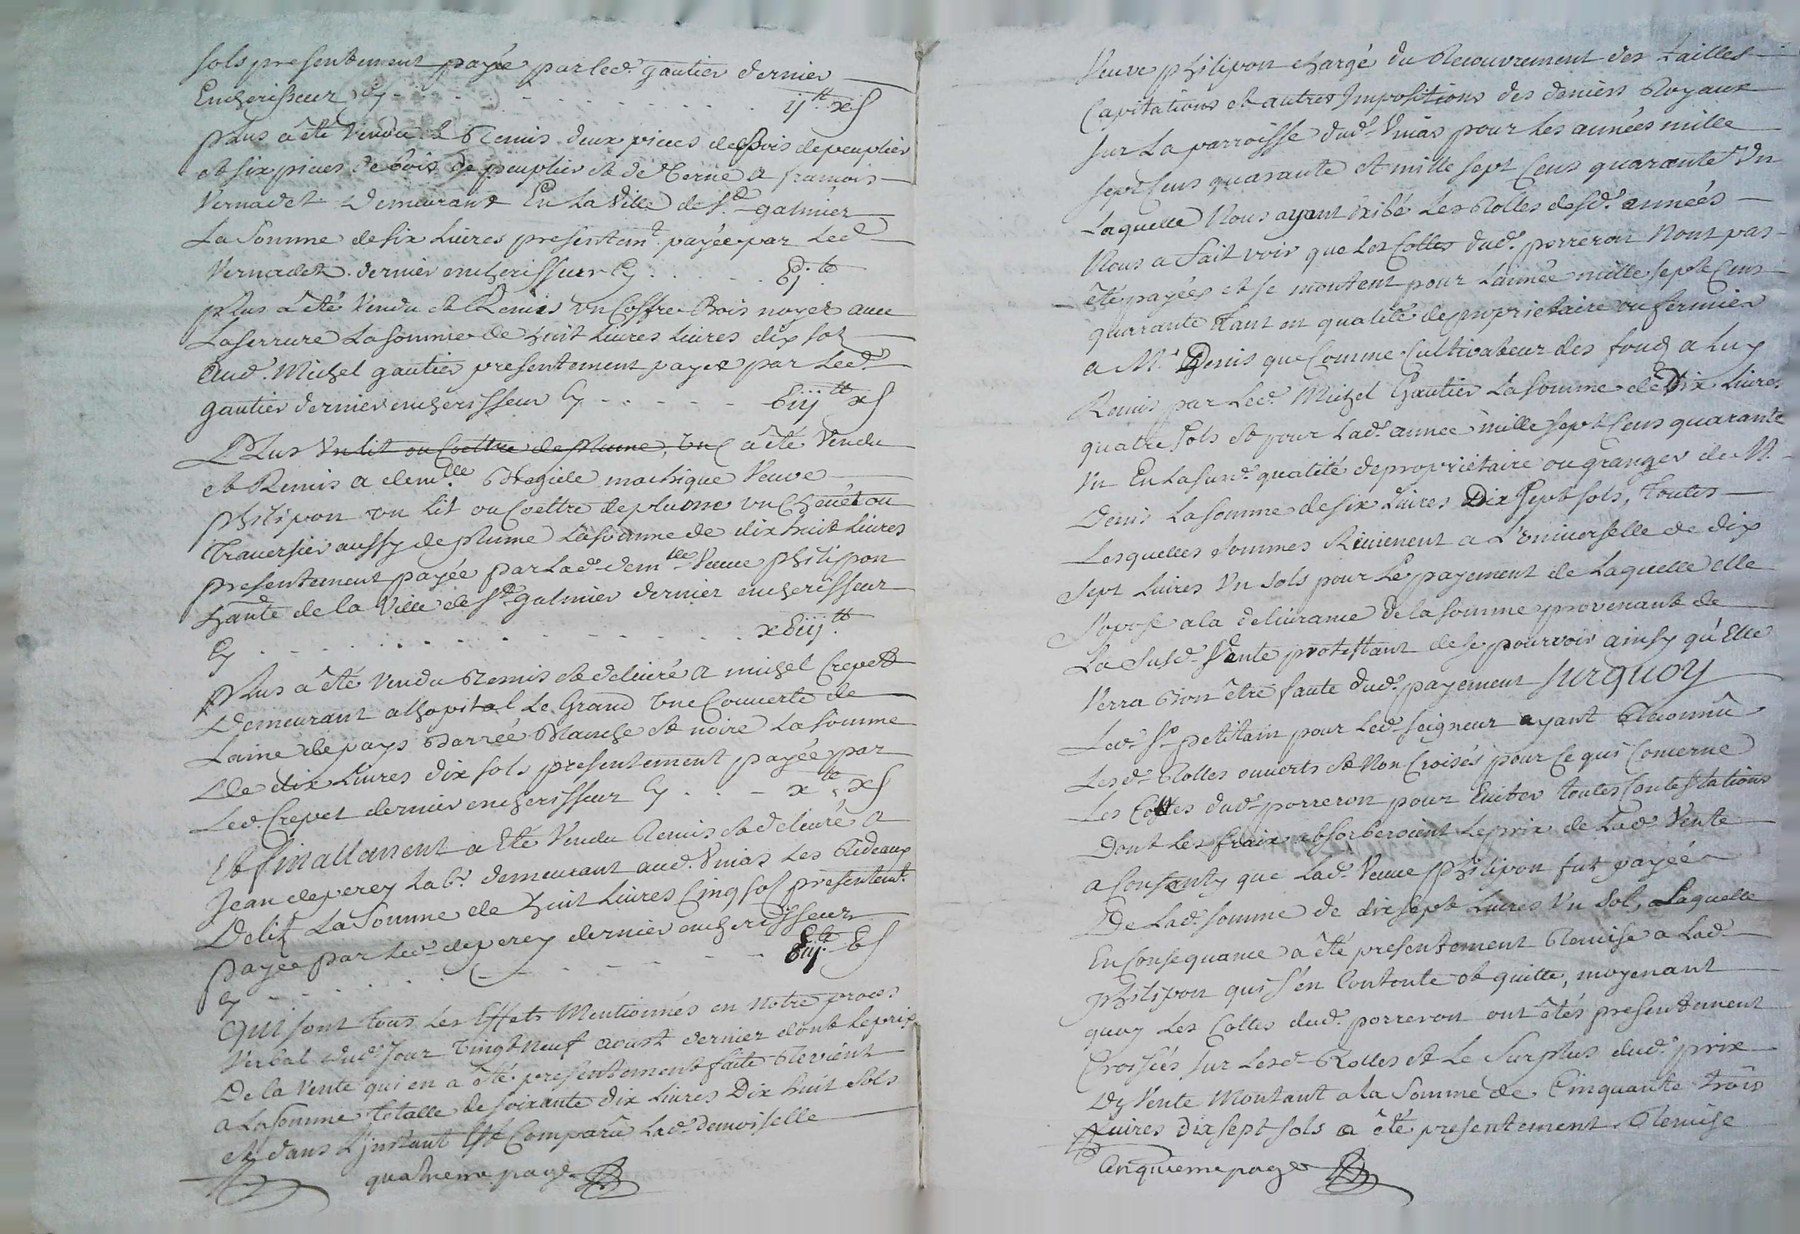 sols presentement payé par led. gautier dernier
Encherisseur Cy - - - ij lt x s
Plus a été Vendu & Remis deux pieces de Bois de peuplier
et six pieces de bois de peuplier et de Verne a francois
Vernadet Demeurant En La Ville de St. galmier
La Somme de six Livres presentemt. payée par Led.
Vernadet dernier encherisseur Cy . . . . . Vj lt
Plus a été Vendu et Remis un Coffre Bois noyer avec
La serrure La somme de huit Livres Livres dix sols
Aud. Michel gautier presentement payez par Led.
Gautier dernier encherisseur Cy - - - - - Viij lt x s
Plus Un lit ou Coettre de Plume, Un a été Vendu
et Remis a demlle. machique Veuve
Philipon un lit ou Coettre de plume un Chevét ou
Traversier aussy de plume La somme de dix huit Livres
presentement payée par Lad. demlle. Veuve Philippon
hante. de la Ville de St. galmier dernier encherisseur
Cy - - - - - - - - xViij lt
Plus a été Vendu Remis et delivré a michel Crepet
Demeurant a Lhopital Le Grand Une Couverte de
Laine de pays Barrée Blanche et noire La somme
De dix Livres dix sols presentement payée par
Led. Crepet dernier encherisseur Cy . . . - x lt x s
Et finallement a Eté Vendu Remis et delivré a
Jean deperey Labr. demeurant aud. Unias Les Rideaux
De lit La Somme de huit Livres Cinq sols presentemt.
payée par Led. deperey dernier encherisseur
Cy - - - - - - Viij lt V s
Qui sont tous Les Effets Mentionnés en notre proces
Verbal dud. Jour Vingt Neuf avoust dernier dont Le prix
De la Vente qui en a été presentement faite Revient
a La somme totalle de soixante dix Livres Dix huit sols
et dans L'instant Est Comparu Lad. demoiselle
quatrieme page
Veuve Philipon chargé du Recouvrement des tailles
Capitations et autres Impositions des deniers Royaux
sur La parroisse dud. Unias pour Les années mille
sept Cens quarante et mille sept Cens quarante Un
Laquelle Nous ayant Exibé Les Rolles desd. années
Nous a fait voir que Les Cottes dud. porreron Nont pas
été payées et se montent pour L'année mille sept Cens
quarante tant en qualité de proprietaire ou fermier
a Mr. Denis que Comme Cultivateur des fonds a Luy
Remis par Led. Michel Gautier La somme de Dix Livres
quatre sols et pour Lad. année mille sept Cens quarante
Un En La susd. qualité de proprietaire ou granger de M.
Denis La somme de six Livres Dix sept sols, toutes
Lesquelles Sommes Reviennent a L'Universelle de dix
sept Livres Un sols pour Le payement de Laquelle elle
S'opose a la delivrance de la somme provenant de
La susd. Vente protestant de se pourvoir ainsy qu'Elle
Verra Bon être faute dud. payement Surquoy
Led. Sr. petitain pour Led. seigneur ayant Reconnû
Lesd. Rolles ouverts et Non Croisés pour Ce qui Concerne
Les Cottes dud. porreron pour Eviter toutes Contestations
Dont Les fraix absorberoient Le prix de Lad. Vente
a Consenty que Lad. Veuve Philipon fut payée
De Lad. somme de dix sept Livres Un sol, Laquelle
En Consequance a été presentement Remise a Lad.
Philipon qui s'en Contente et quitte, moyenant
quoy Les Cottes dud. porreron ont êtés presentement
Croisées sur Lesd. Rolles et Le Surplus dud. prix
De Vente Montant a la Somme de Cinquante trois
Livres dix sept sols a été presentement Remise
Cinquieme page